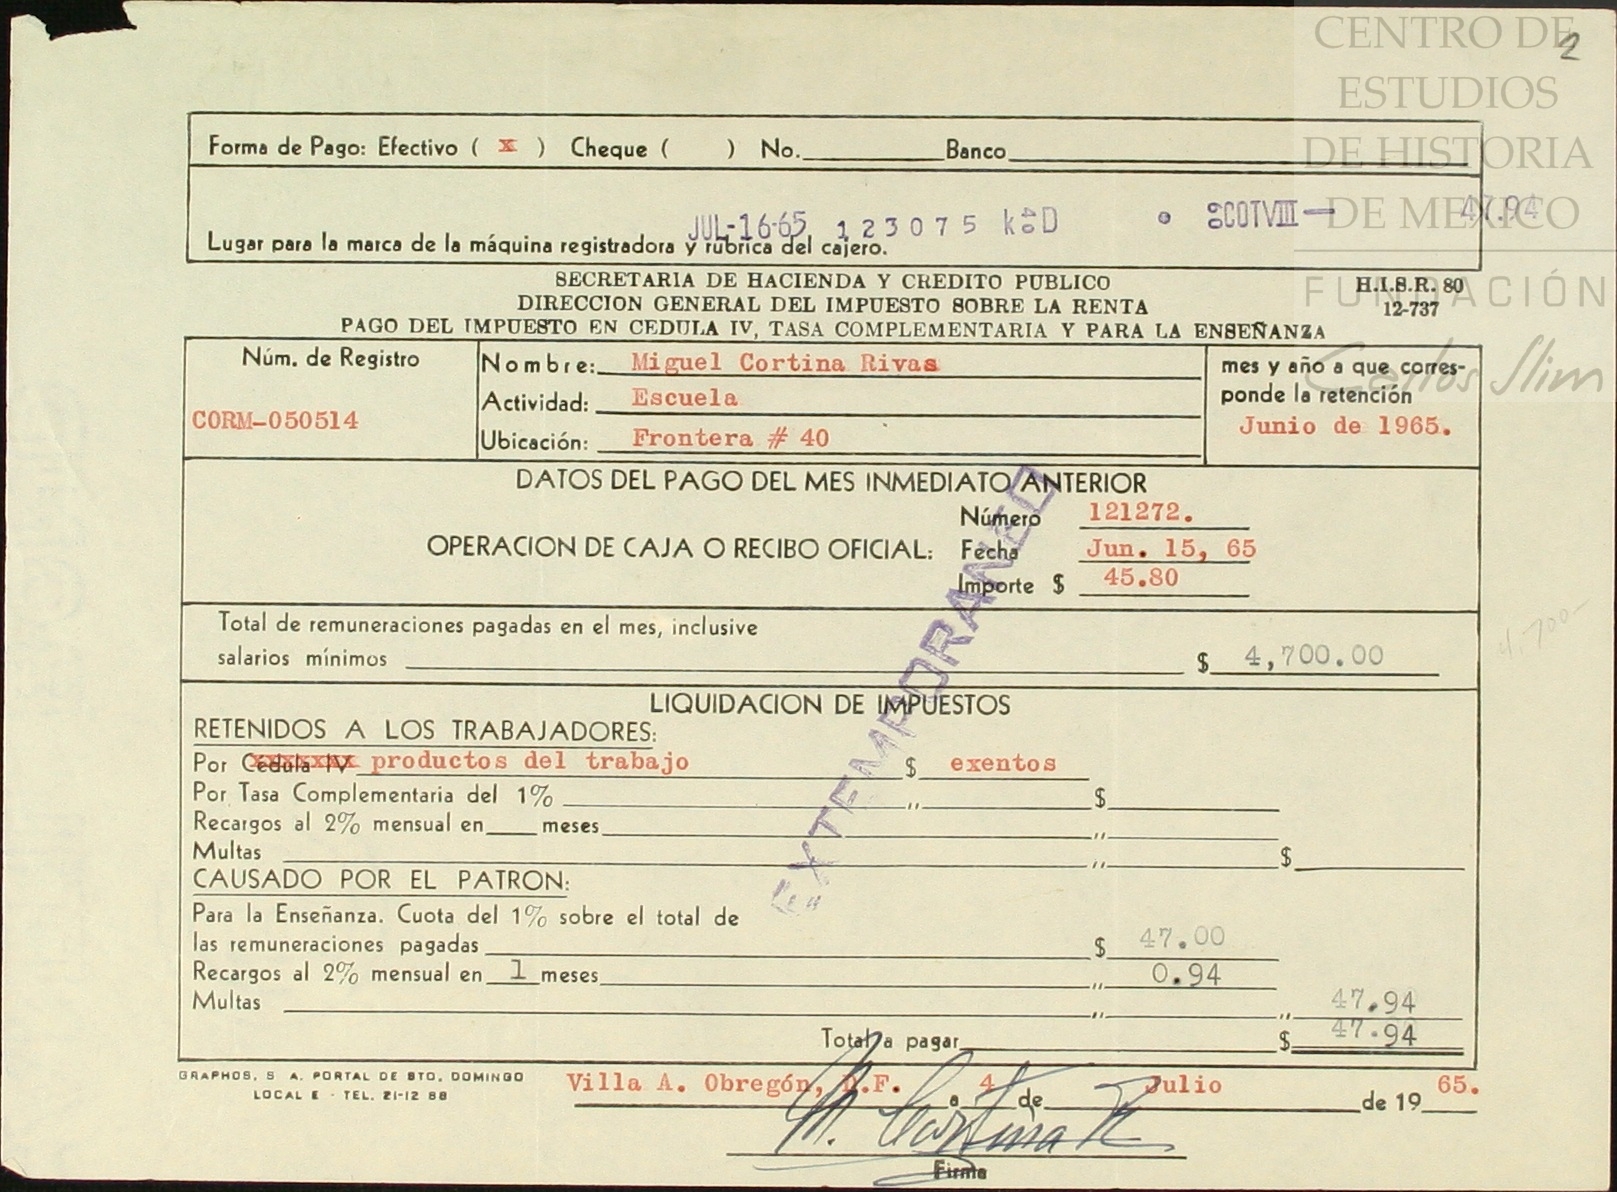 CENTRO DE
ESTUDIOS
DE HISTORIA
DE MEXICO
FUNDACIÓN
Carlos Slim
2
Forma de Pago: Efectivo ( x ) Cheque ( ) No. Banco
JUL-16-65 123075 47.94
Lugar para la marca de la máquina registradora y rúbrica del cajero.
SECRETARIA DE HACIENDA Y CREDITO PUBLICO
DIRECCION GENERAL DEL IMPUESTO SOBRE LA RENTA
PAGO DEL IMPUESTO EN CEDULA IV, TASA COMPLEMENTARIA Y PARA LA ENSEÑANZA
H.I.S.R. 80
12-737
Núm. de Registro
CORM-050514
Nombre: Miguel Cortina Rivas
Actividad: Escuela
Ubicación: Frontera # 40
mes y año a que corres-
ponde la retención
Junio de 1965.
DATOS DEL PAGO DEL MES INMEDIATO ANTERIOR
Número 121272.
OPERACION DE CAJA O RECIBO OFICIAL: Fecha Jun. 15, 65
Importe $ 45.80
EXTEMPORANEO
Total de remuneraciones pagadas en el mes, inclusive
salarios mínimos $ 4,700.00
4,700-
LIQUIDACION DE IMPUESTOS
RETENIDOS A LOS TRABAJADORES:
Por Cedula IV productos del trabajo $ exentos
Por Tasa Complementaria del 1% ,, $
Recargos al 2% mensual en meses ,,
Multas ,, $
CAUSADO POR EL PATRON:
Para la Enseñanza. Cuota del 1% sobre el total de
las remuneraciones pagadas $ 47.00
Recargos al 2% mensual en 1 meses ,, 0.94
Multas ,, ,, 47.94
Total a pagar $ 47.94
GRAPHOS, S A. PORTAL DE STO, DOMINGO
LOCAL E - TEL. 21-12 88
Villa A. Obregón, D.F. a 4 de Julio de 19 65.
M. Cortina R
Firma